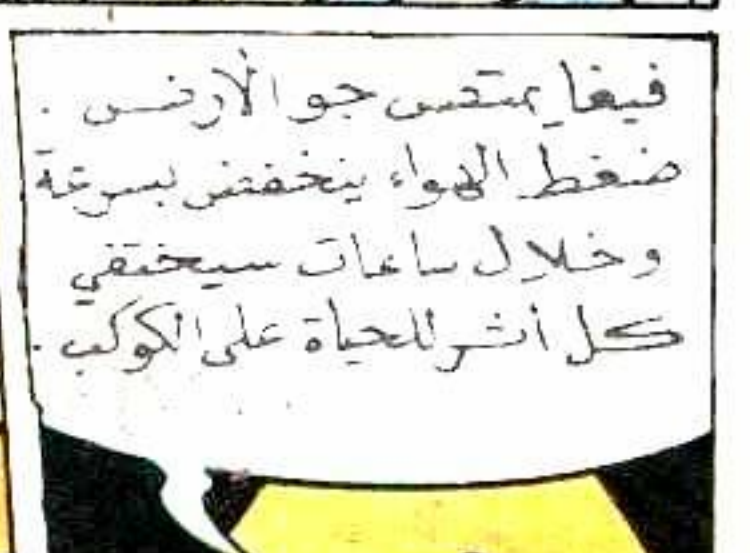 فيغا يمتص جو الأرض .
ضغط الهواء ينخفض بسرعة
وخلال ساعات سيختفي
كل أثر للحياة على الكوكب .